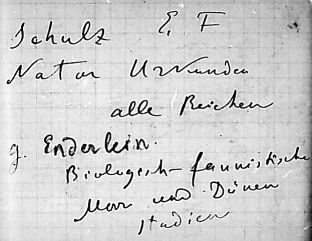 Schulz E F
Natur Urkunden
alle Reichen
g. Enderlein.
Biologisch-faunistische
Moor und Dünen
studien